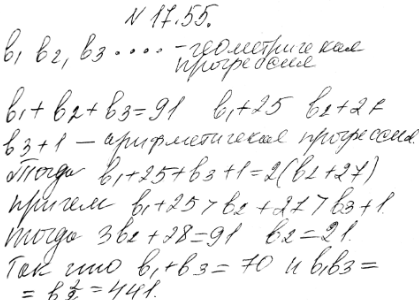 N 17.55.
b₁ b₂, b₃ .... - геометрическая
прогрессия
b₁ + b₂ + b₃ = 91 b₁ + 25 b₂ + 27
b₃ + 1 — арифметическая прогрессия.
Тогда b₁ + 25 + b₃ + 1 = 2(b₂ + 27)
причем b₁ + 25 > b₂ + 27 > b₃ + 1.
Тогда 3b₂ + 28 = 91 b₂ = 21.
Так что b₁ + b₃ = 70 и b₁b₃ =
= b₂² = 441.